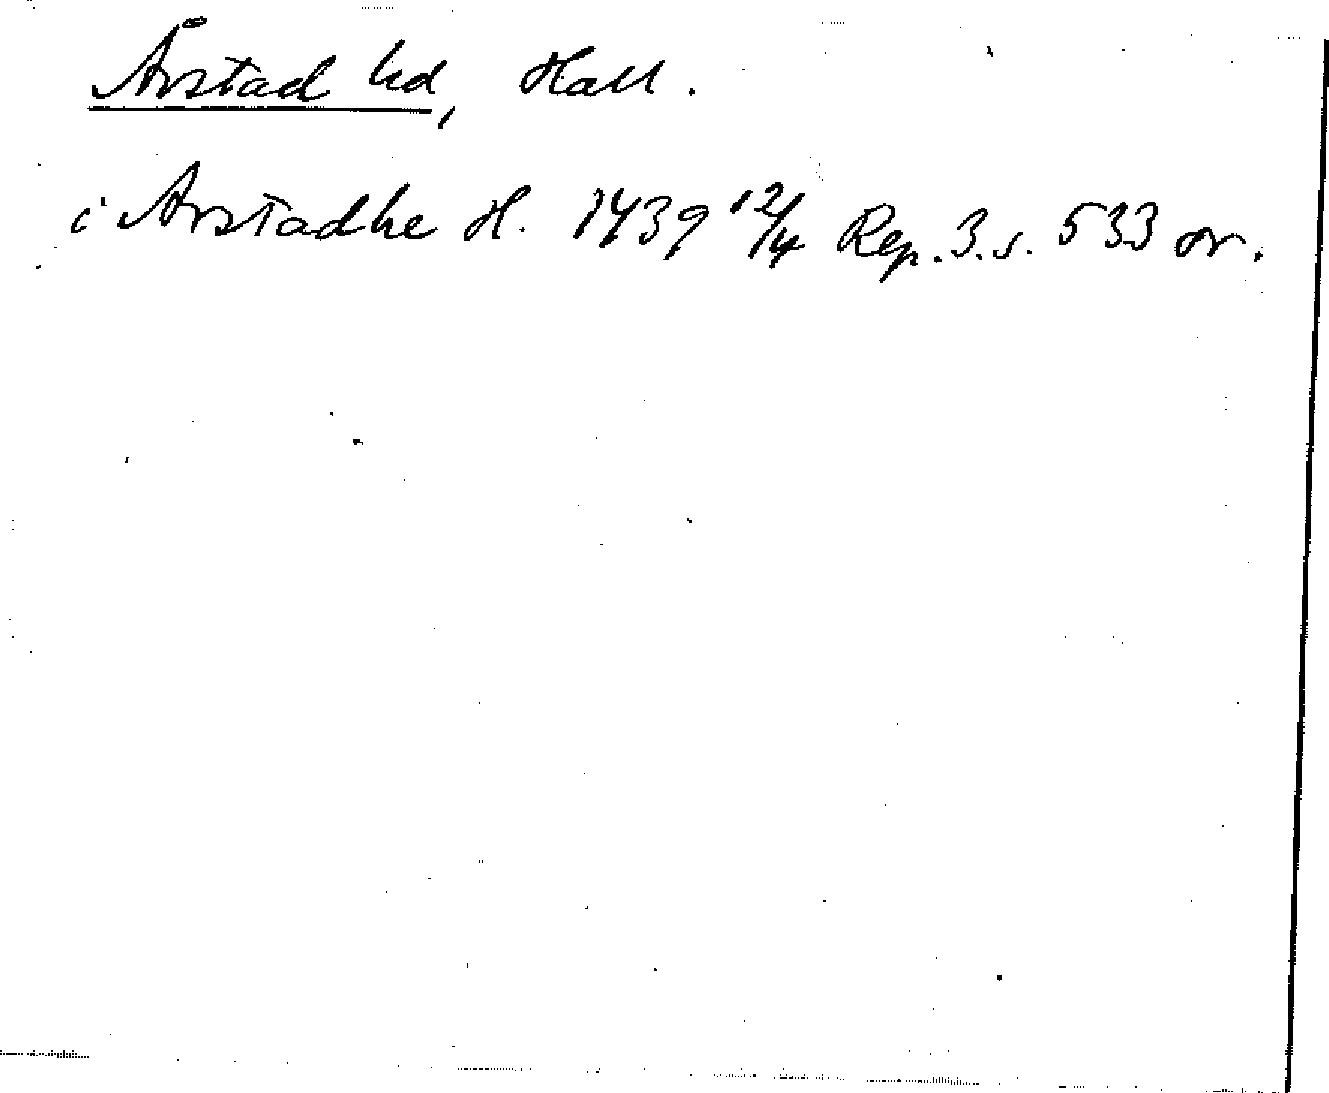 Årstad hd, Hall.
i Arstadhe H. 1439 12/4 Rep. 3. s. 533 or.